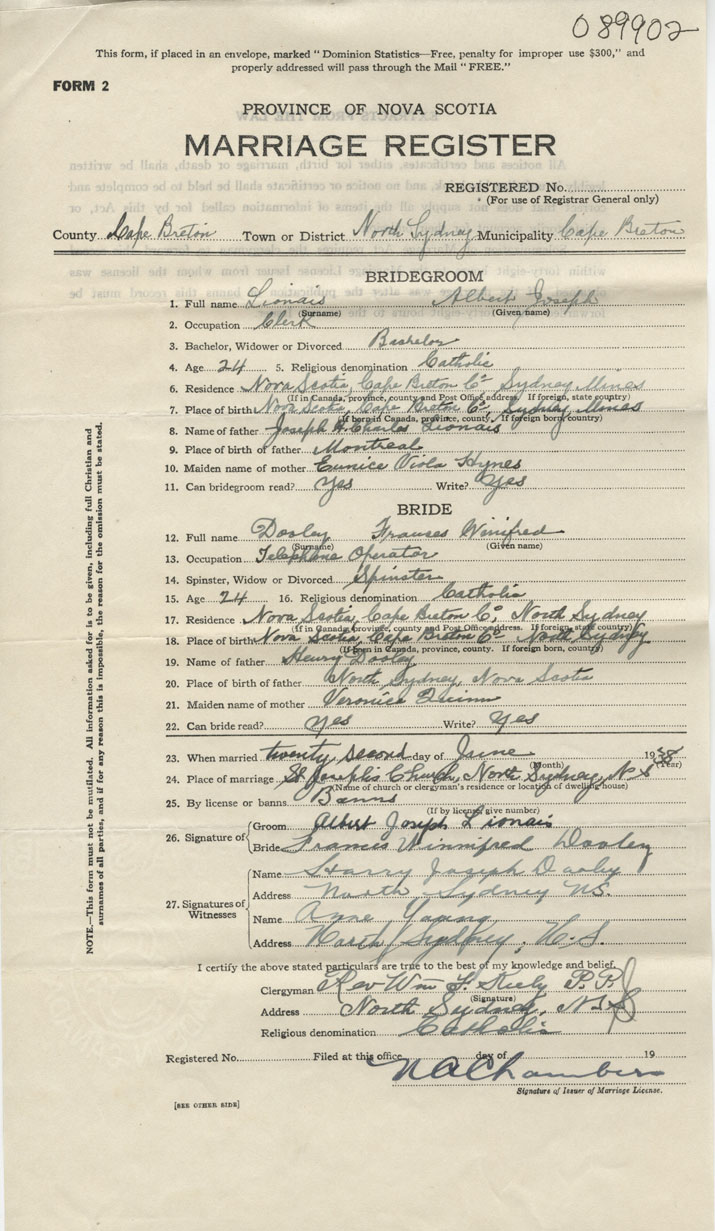 089902
This form, if placed in an envelope, marked "Dominion Statistics—Free, penalty for improper use $300," and
properly addressed will pass through the Mail "FREE."
FORM 2
PROVINCE OF NOVA SCOTIA
MARRIAGE REGISTER
REGISTERED No.
(For use of Registrar General only)
County Cape Breton Town or District North Sydney Municipality Cape Breton
BRIDEGROOM
1. Full name Lionais Albert Joseph
(Surname) (Given name)
2. Occupation Clerk
3. Bachelor, Widower or Divorced Bachelor
4. Age 24 5. Religious denomination Catholic
6. Residence Nova Scotia, Cape Breton Co Sydney Mines
(If in Canada, province, county and Post Office address. If foreign, state country)
7. Place of birth Nova Scotia, Cape Breton Co, Sydney Mines
(If born in Canada, province, county. If foreign born, country)
8. Name of father Joseph Charles Lionais
9. Place of birth of father Montreal
10. Maiden name of mother Eunice Viola Hynes
11. Can bridegroom read? Yes Write? Yes
BRIDE
12. Full name Dooley Frances Winifred
(Surname) (Given name)
13. Occupation Telephone Operator
14. Spinster, Widow or Divorced Spinster
15. Age 24 16. Religious denomination Catholic
17. Residence Nova Scotia, Cape Breton Co, North Sydney
(If in Canada, province, county and Post Office address. If foreign, state country)
18. Place of birth Nova Scotia, Cape Breton Co North Sydney
(If born in Canada, province, county. If foreign born, country)
19. Name of father Henry Dooley
20. Place of birth of father North Sydney, Nova Scotia
21. Maiden name of mother Veronica Quinn
22. Can bride read? Yes Write? Yes
23. When married twenty second day of June 1938
(Month) (Year)
24. Place of marriage St Joseph's Church, North Sydney, N.S
(Name of church or clergyman's residence or location of dwelling house)
25. By license or banns Banns
(If by license, give number)
26. Signature of Groom Albert Joseph Lionais
Bride Francis Winnifred Dooley
27. Signatures of Witnesses
Name Harry Joseph Dooley
Address North Sydney N.S.
Name Anne Young
Address North Sydney, N.S.
NOTE.—This form must not be mutilated. All information asked for is to be given, including full Christian and
surnames of all parties, and if for any reason this is impossible, the reason for the omission must be stated.
I certify the above stated particulars are true to the best of my knowledge and belief.
Clergyman Rev Wm F. Kiely P.P.
(Signature)
Address North Sydney, N.S
Religious denomination Catholic
Registered No. Filed at this office day of 19
N A Chambers
Signature of Issuer of Marriage License.
[SEE OTHER SIDE]